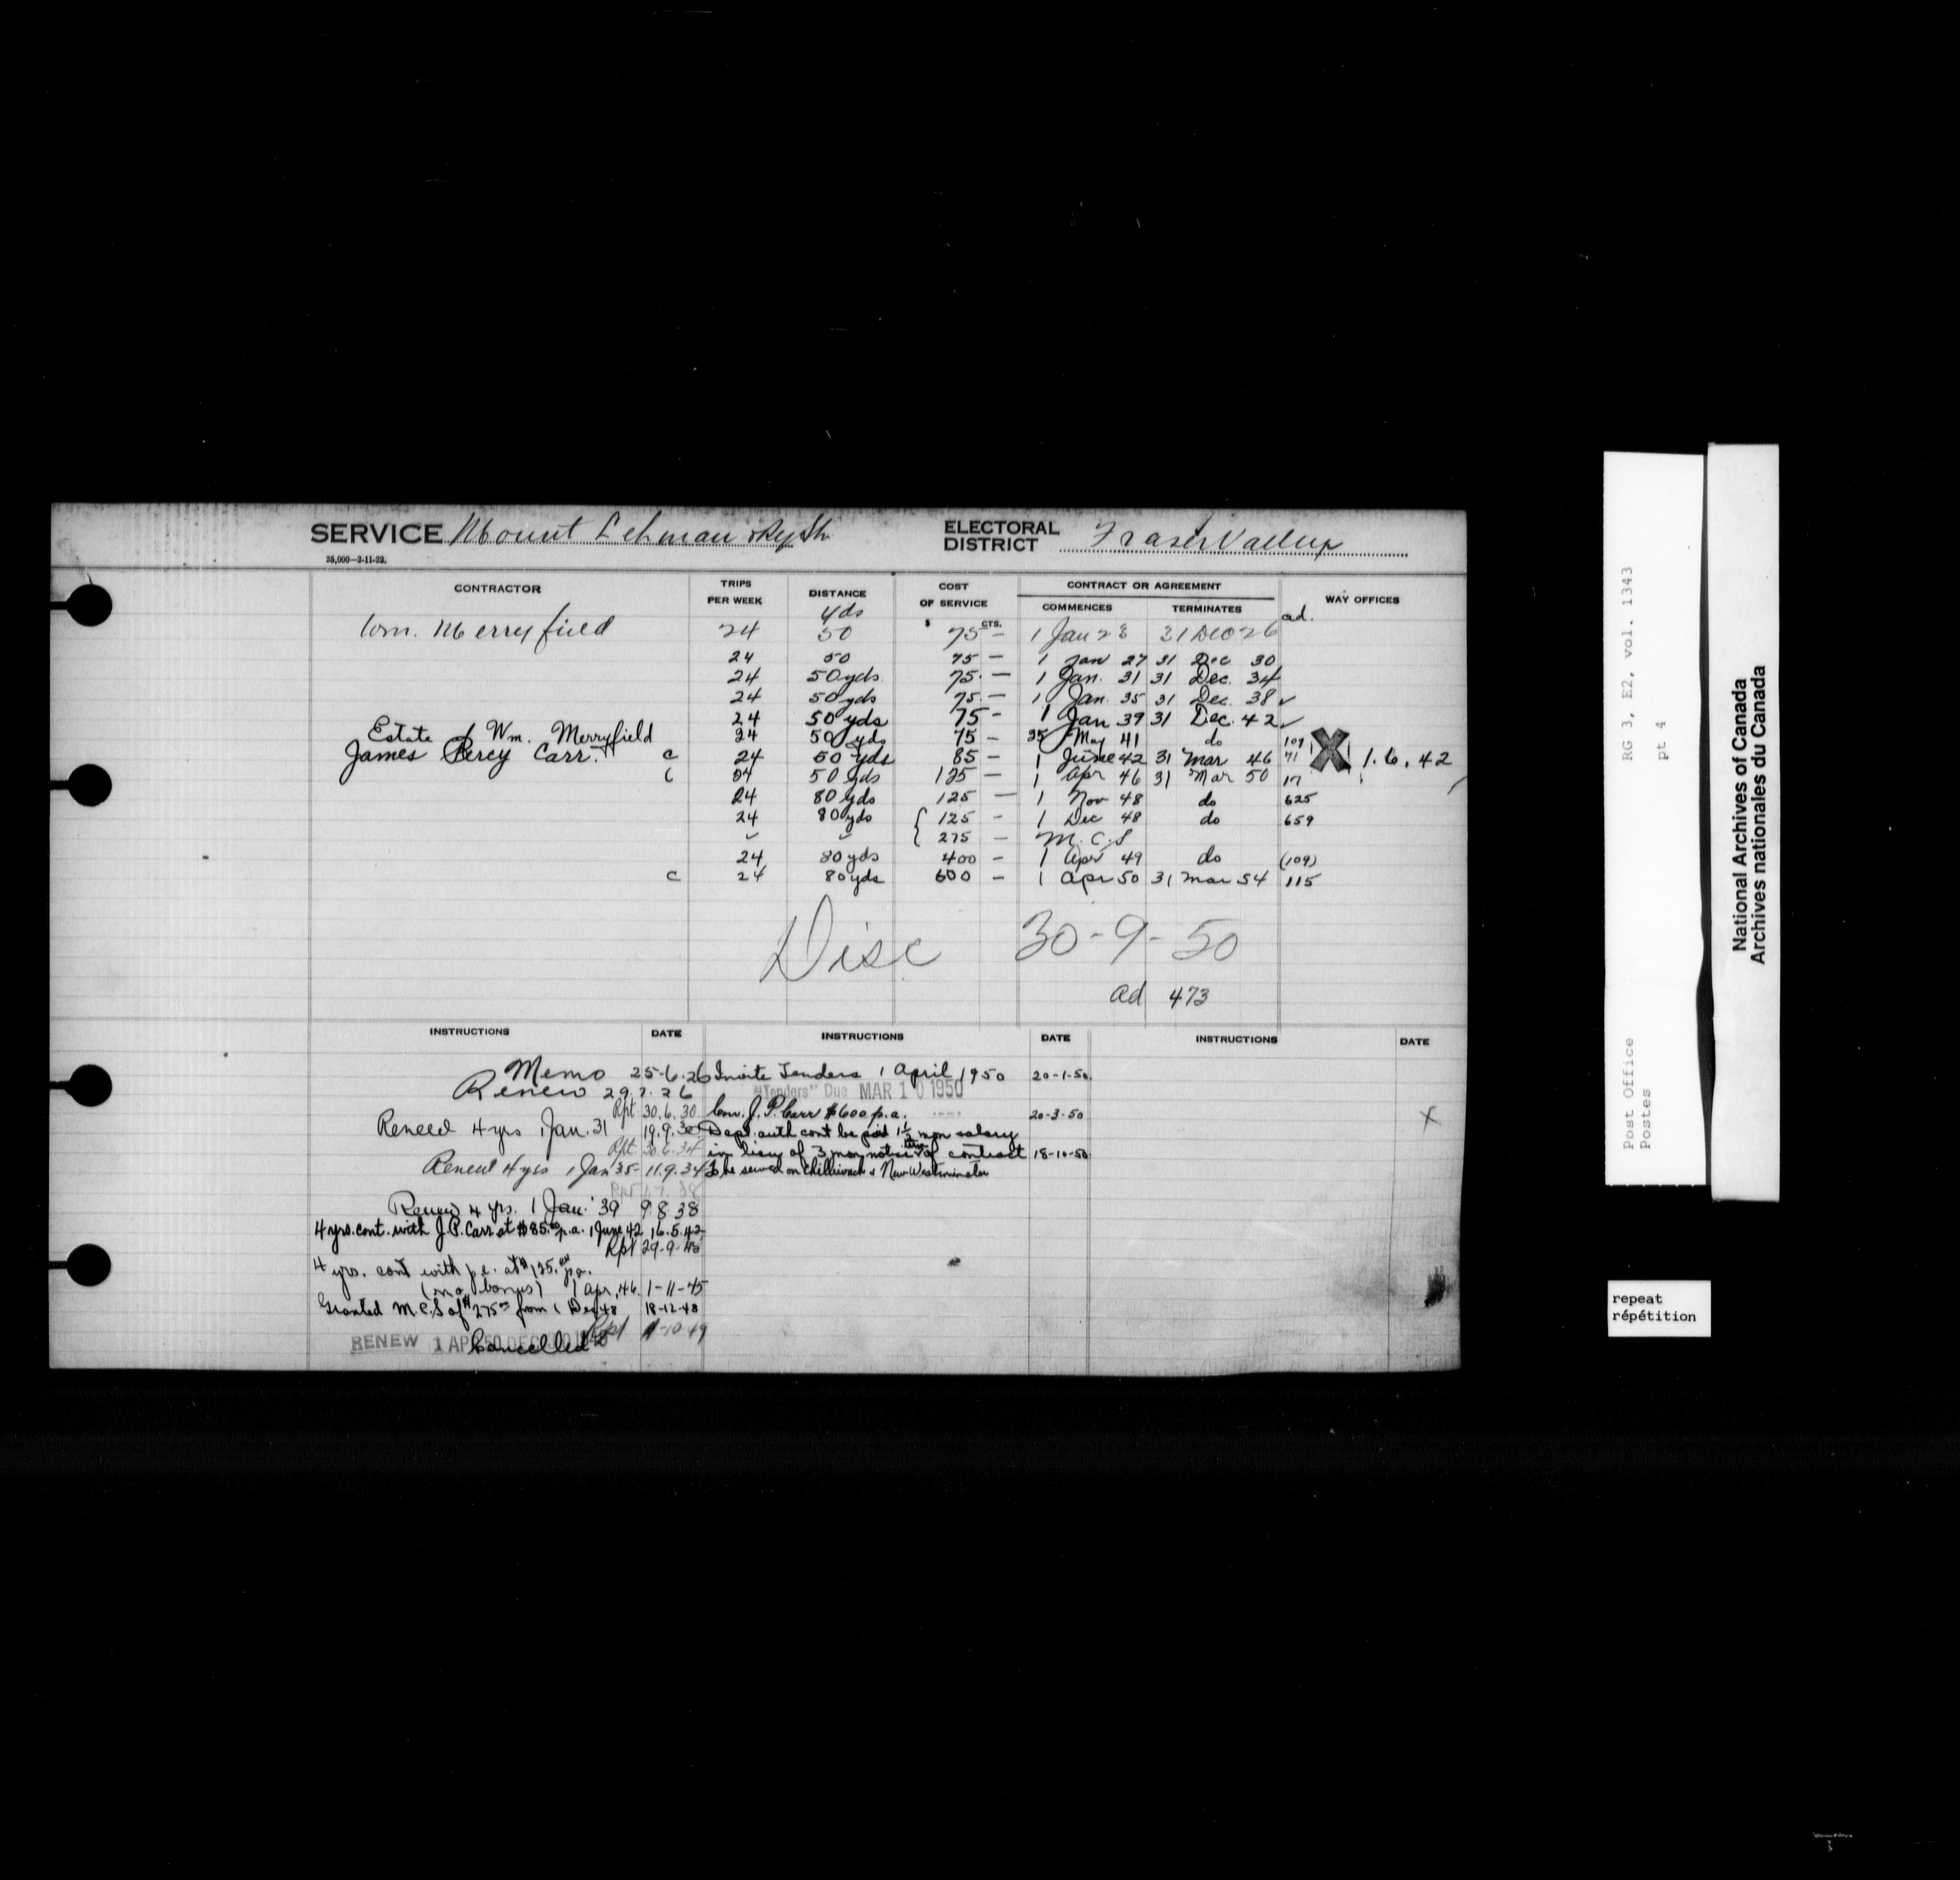 SERVICE Mount Lehman Ry Stn ELECTORAL DISTRICT Fraser Valley
25,000—2-11-22.
CONTRACTOR TRIPS PER WEEK DISTANCE COST OF SERVICE CONTRACT OR AGREEMENT WAY OFFICES
COMMENCES TERMINATES
yds $ CTS. ad.
Wm. Merryfield 24 50 75 — 1 Jan 23 31 Dec 26
24 50 75 — 1 Jan 27 31 Dec 30
24 50 yds. 75. — 1 Jan. 31 31 Dec. 34
24 50 yds 75. — 1 Jan. 35 31 Dec. 38 ✓
24 50 yds 75 - 1 Jan 39 31 Dec. 42 ✓
Estate of Wm. Merryfield 24 50 yds 75 — 25 May 41 do 109
James Percy Carr. c 24 50 yds 85 — 1 June 42 31 Mar 46 71 X 1.6.42
c 24 50 yds 125 — 1 Apr 46 31 Mar 50 17
24 80 yds 125 — 1 Nov 48 do 625
24 80 yds { 125 — 1 Dec 48 do 659
275 — M.C.S
24 80 yds 400 — 1 Apr 49 do (109)
c 24 80 yds 600 — 1 Apr 50 31 Mar 54 115
Disc 30-9-50
ad 473
INSTRUCTIONS DATE INSTRUCTIONS DATE INSTRUCTIONS DATE
Memo 25-6-26
Renew 29.7.26
Rpt 30.6.30
Renew 4 yrs 1 Jan. 31 19.9.30
Rpt 30.6.34
Renew 4 yrs 1 Jan 35 - 11.9.34
Rpt 1.7.38
Renew 4 yrs. 1 Jan. '39 9.8.38
4 yrs. cont. with J.P. Carr at $85.00 p.a. 1 June 42 16.5.42
Rpt 29-9-45
4 yrs. cont with p.c. at $125.00 p.a.
(no bonus) 1 Apr. 46. 1-11-45
Granted M.C.S of $275.00 from 1 Dec 48 18-12-48
Rpt 1-10-49
RENEW 1 APR 50 DEC Cancelled
Invite Tenders 1 April 1950 20-1-50.
"Tenders" Due MAR 10 1950
Con. J. P. Carr $600 p.a. 20-3-50
Dept. auth cont be paid 1½ mon salary
in lieu of 3 mon notice of contract 18-10-50
To be served on Chilliwack & New Westminster
X
RG 3, E2, vol. 1343
pt 4
Post Office
Postes
National Archives of Canada
Archives nationales du Canada
repeat
répétition